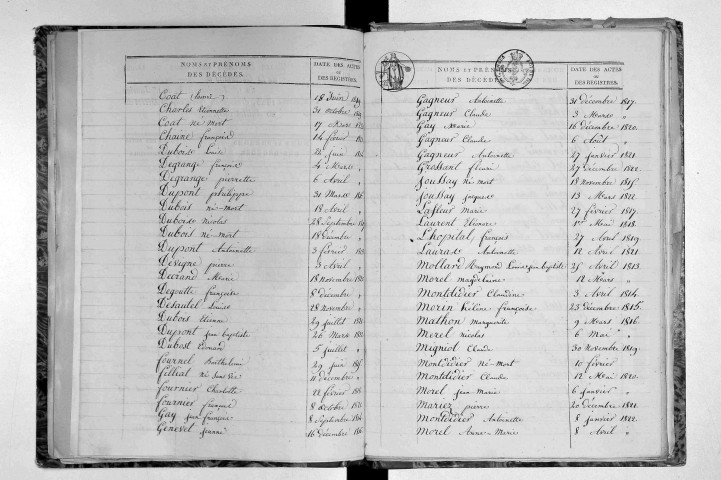 NOMS ET PRÉNOMS DES DÉCÉDÉS. DATE DES ACTES OU DES REGISTRES.
Coat 18 Juin
Charles Etiennette 31 octobre
Coat né mort 17 Mars
Chaine françois 14 février
Dubois Louis 22 Juin
Degrange françois 4 Mars
Degrange pierrette 6 Avril
Dupont philippe 31 Mars
Dubois né-mort 18 Avril
Dubois Nicolas 28 Septembre
Dubois né-mort 18 Décembre
Dupont Antoinette 3 février
Designe pierre 3 Avril
Durand Marie 18 novembre
Degoutte françoise 8 Décembre
Desaulet Louise 28 novembre
Dubois Etienne 29 Juillet
Dupont jean baptiste 26 Mars
Dubost Léonard 5 Juillet
fournel Barthelemi 29 Juin
11 Décembre
fournier Charlotte 12 février
fournier françois 8 octobre
Gay jean françois 8 Septembre
Genevet jeanne 16 Décembre
NOMS ET PRÉNOMS DES DÉCÉDÉS. DATE DES ACTES OU DES REGISTRES.
Gagneur Antoinette 31 décembre 1817.
Gagneur Claude 3 Mars "
Gay Marie 16 décembre 1820.
Gagneur Claude 6 Août "
Gagneur Antoinette 27 janvier 1821.
Grossant fleurie 27 décembre 1822.
Joussay né mort 18 novembre 1815.
Joussay jacques 13 Mars 1821
Lafleur Marie 27 février 1817.
Laurent Eléonore 1er Mai 1818.
L'hopital françois 27 Avril 1819.
Lauras Antoinette 12 Avril 1821.
Mollard Raymond Louis jean baptiste 25 Avril 1813.
Morel magdelaine 12 Mars "
Montdidier Claudine 3 Avril 1814.
Morin hélène françoise 23 décembre 1815.
Mathon Marguerite 9 Mars 1816.
Merel Nicolas 6 Mai "
Migniol Claude 30 Novembre 1819.
Montdidier né-mort 10 février "
Montdidier Claude 12 Mai 1820.
Morel jean-Marie 6 janvier "
Mariez pierre 20 décembre 1821.
Montdidier Antoinette 8 janvier 1822.
Morel Anne-Marie 8 Avril "